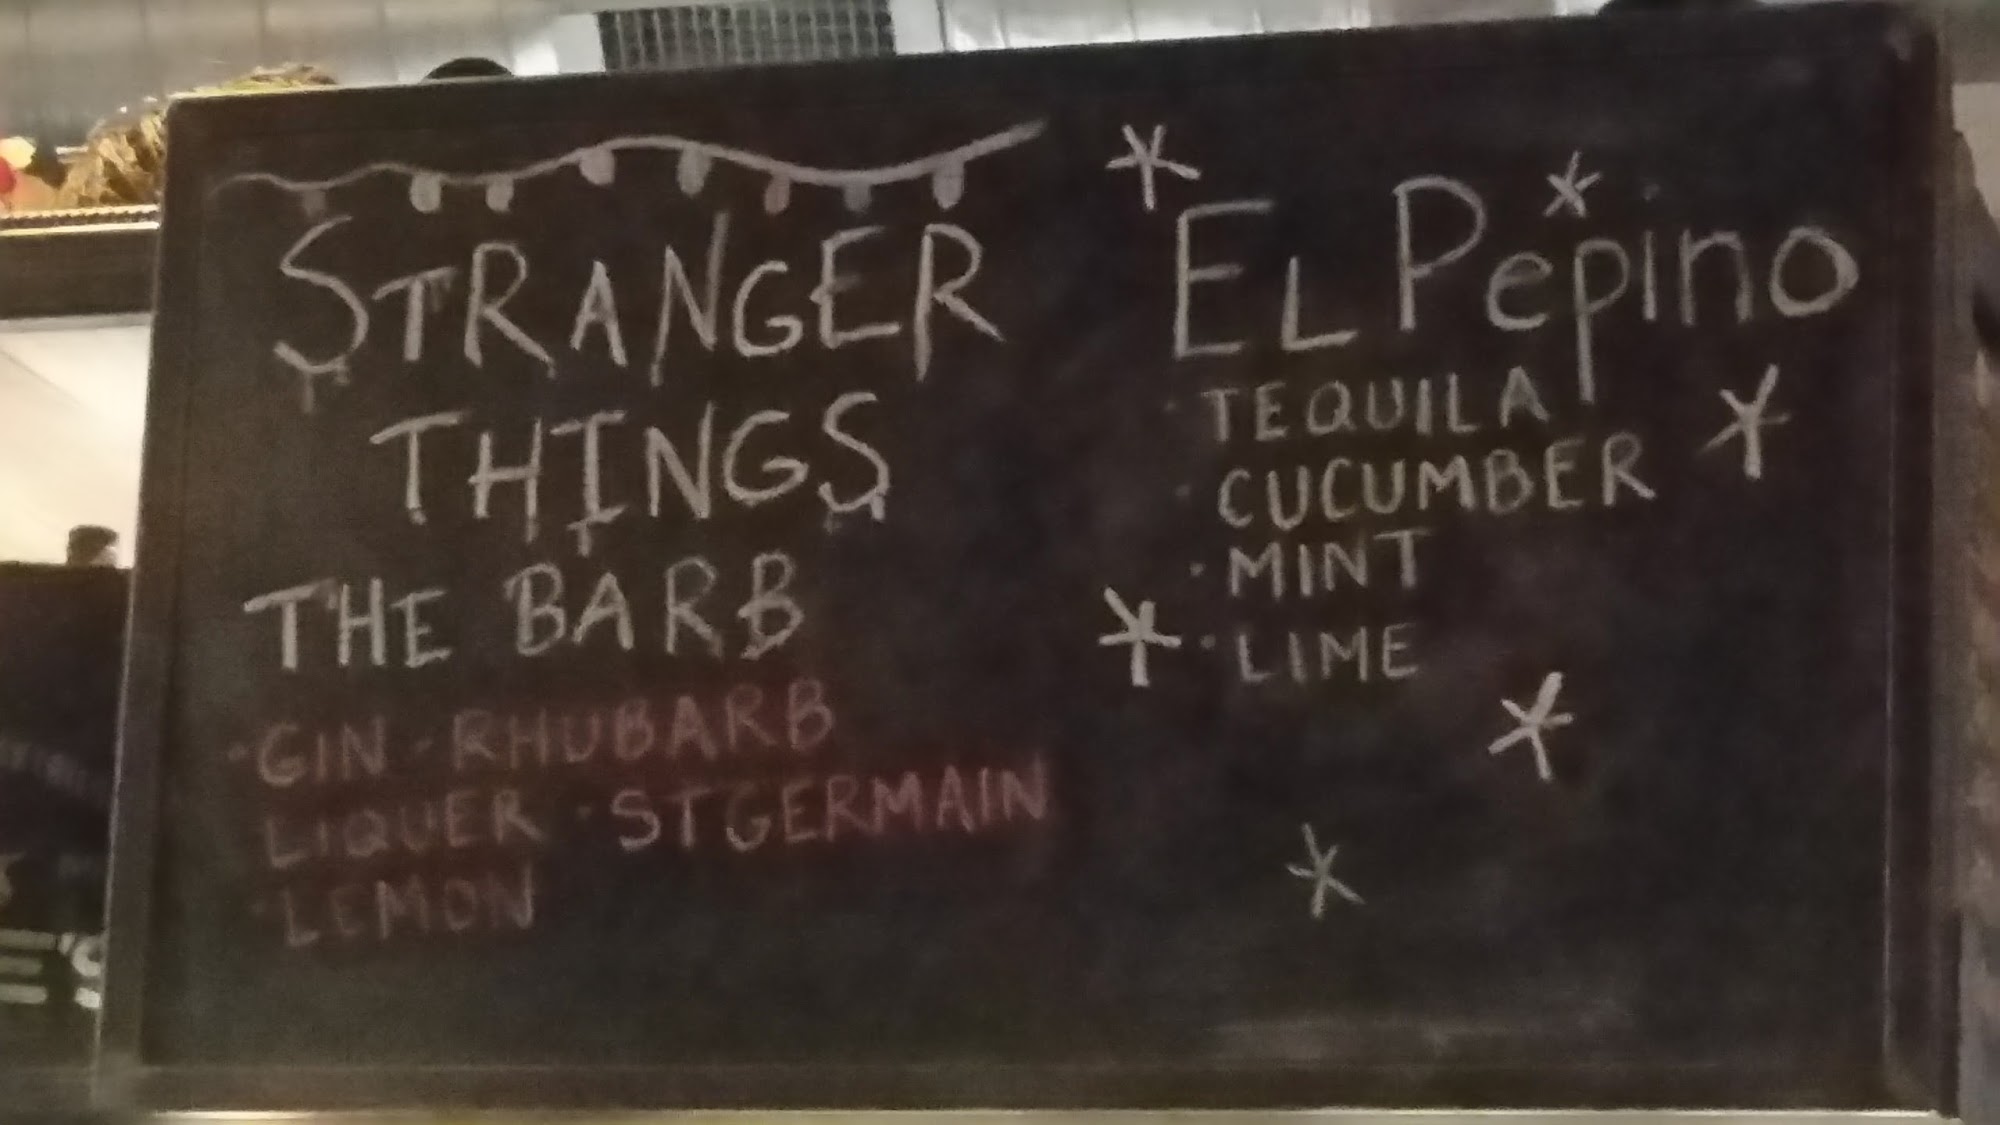 STRANGER
THINGS
THE BARB
·GIN·RHUBARB
LIQUER·ST GERMAIN
·LEMON
EL Pepino
·TEQUILA
·CUCUMBER
·MINT
·LIME